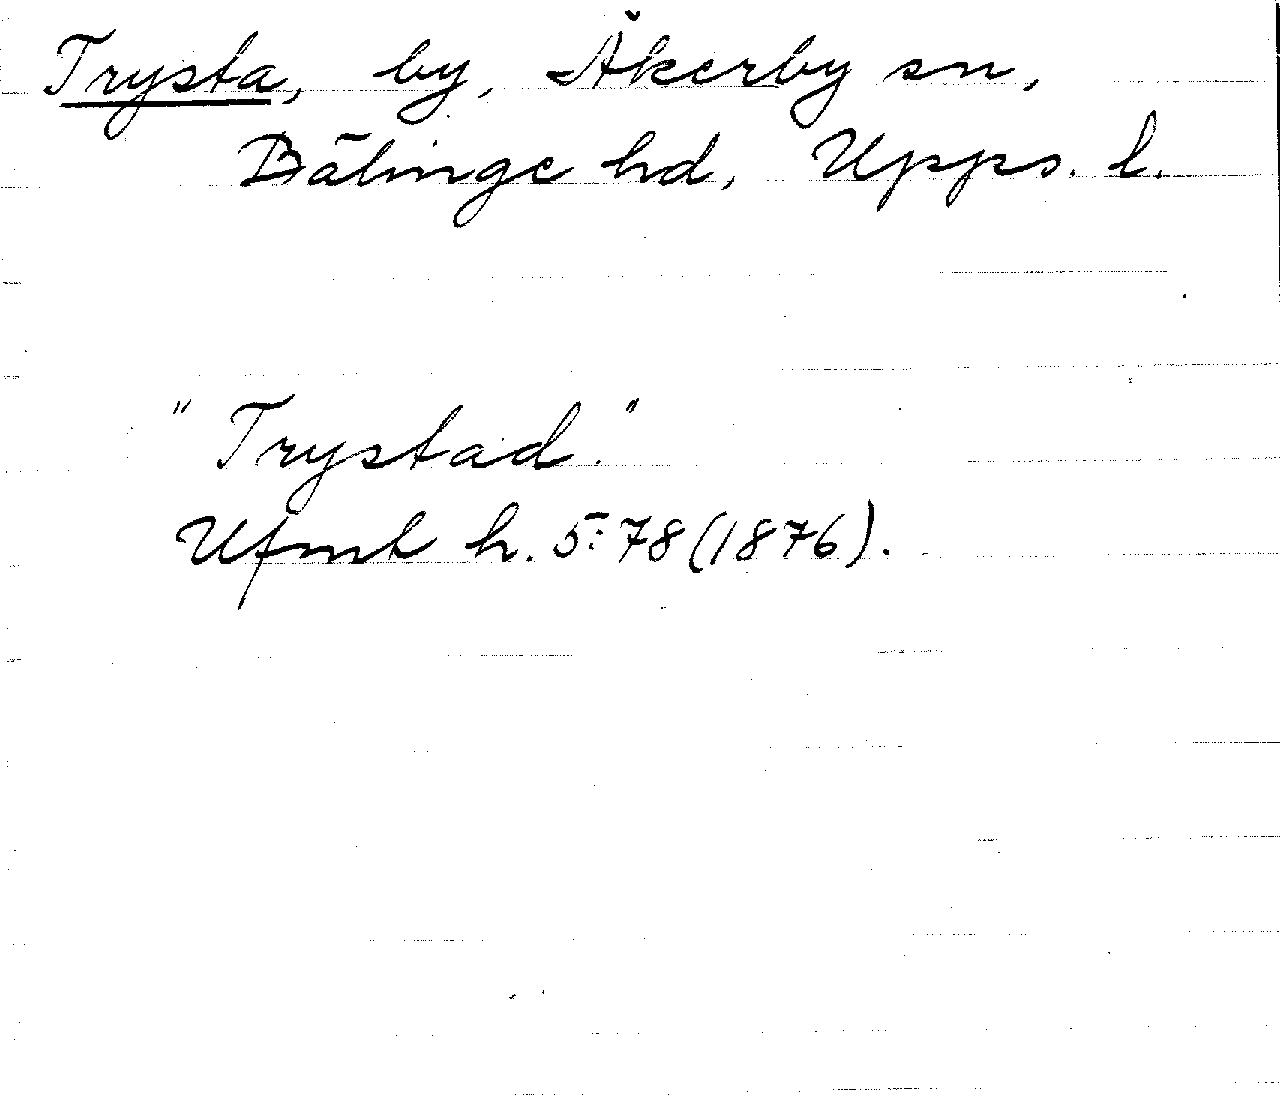 Trysta, by, Åkerby sn,
Bälinge hd, Upps. l.
"Trystad."
Ufmt h. 5:78 (1876).